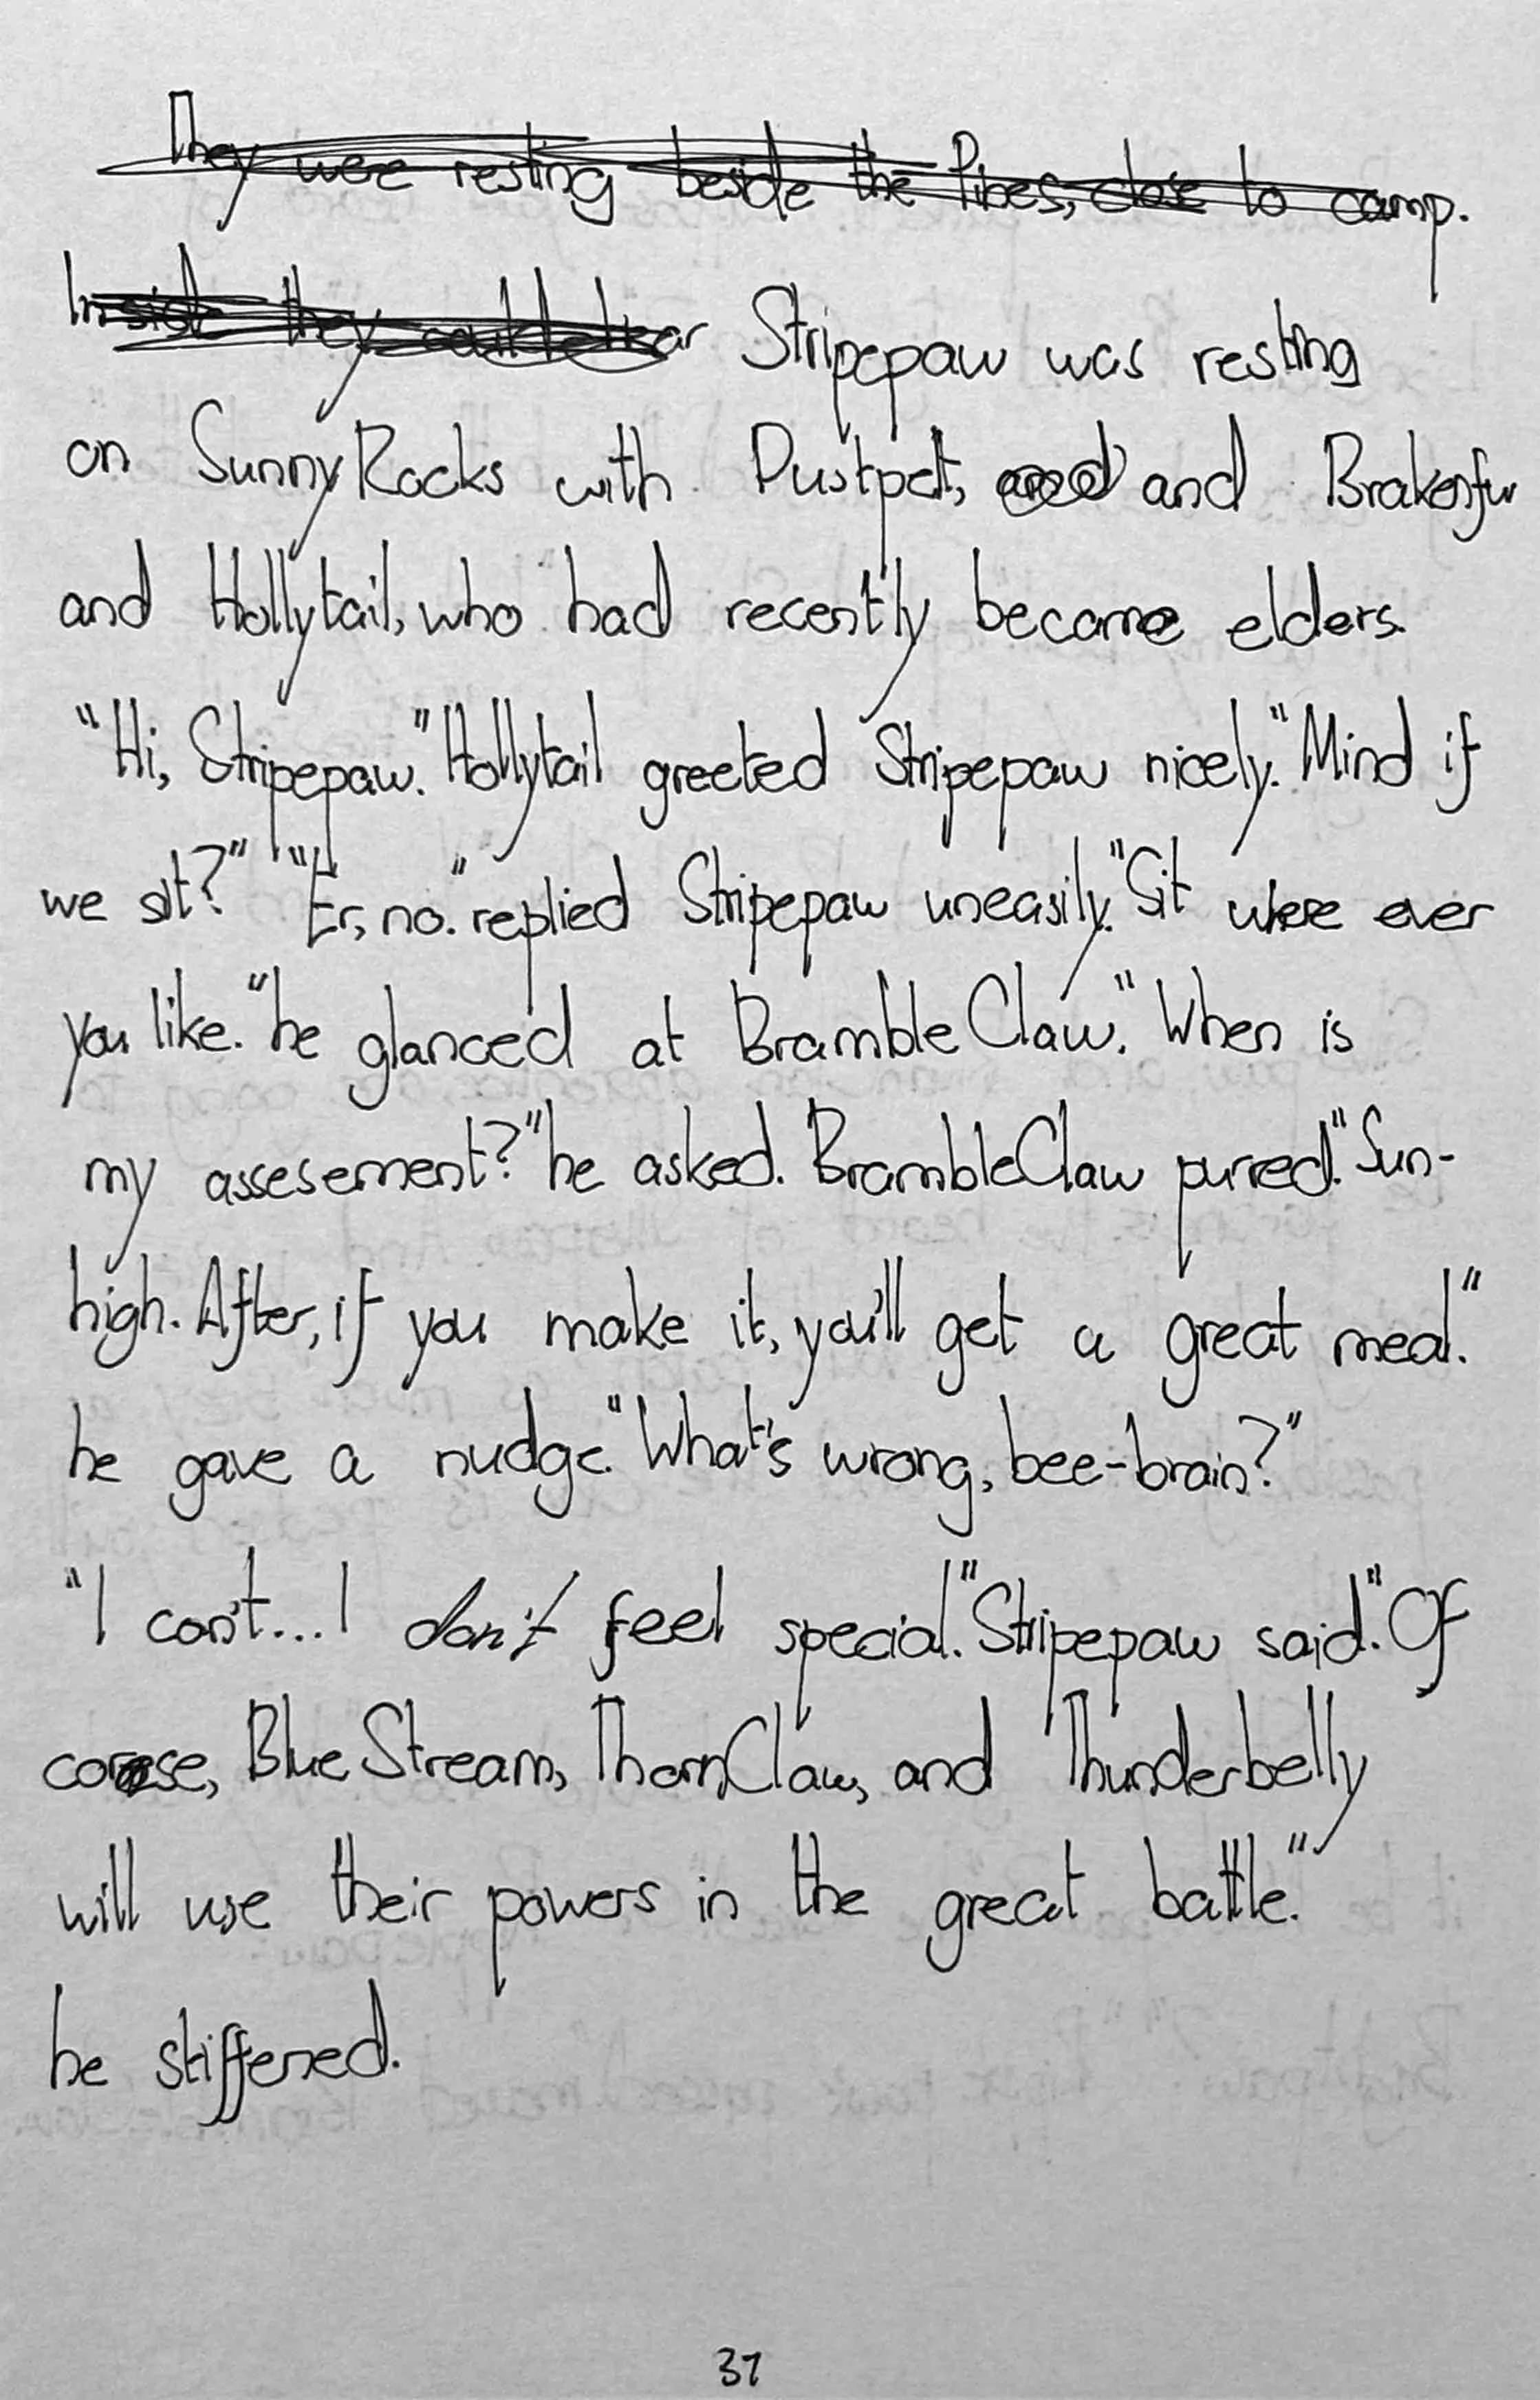 They were resting beside the Pines, close to camp.
Inside they could hear Stripepaw was resting
on SunnyRocks with Dustpelt, and and Brakenfur
and Hollytail, who had recently become elders.
"Hi, Stripepaw." Hollytail greeted Stripepaw nicely. "Mind if
we sit?" "Er, no." replied Stripepaw uneasily. "Sit where ever
you like." he glanced at BrambleClaw. "When is
my assesement?" he asked. BrambleClaw purred. "Sun-
high. After, if you make it, you'll get a great meal."
he gave a nudge. "What's wrong, bee-brain?"
"I can't... I don't feel special." Stripepaw said. "Of
corese, BlueStream, ThornClaw, and Thunderbelly
will use their powers in the great battle."
he stiffened.
37